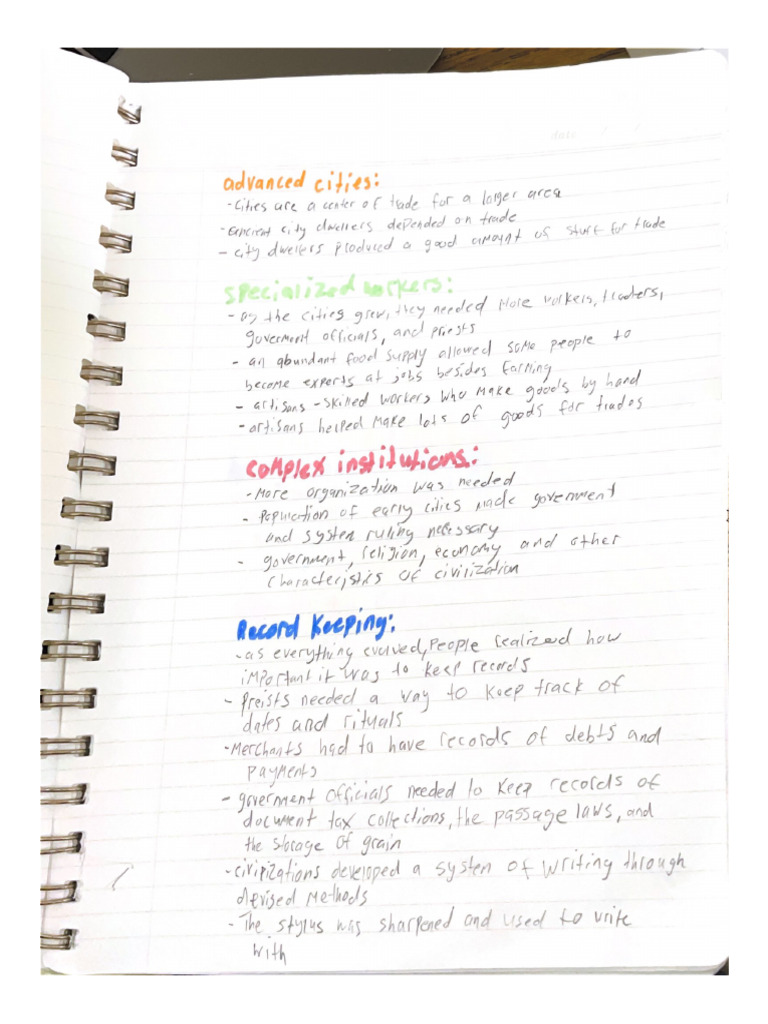 date / /
advanced cities:
- Cities are a center of trade for a larger area
- Ancient city dwellers depended on trade
- city dwellers produced a good amount of stuff for trade
specialized workers:
- as the cities grew, they needed more workers, traders,
goverment officials, and priests
- an abundant food supply allowed some people to
become experts at jobs besides farming
- artisans - skilled workers who make goods by hand
- artisans helped make lots of goods for trades
complex institutions:
- More organization was needed
- Population of early cities made government
and system ruling necessary
- government, religion, economy and other
characteristics of civilization
Record Keeping:
- as everything evolved, people realized how
important it was to keep records
- Preists needed a way to keep track of
dates and rituals
- Merchants had to have records of debts and
payments
- government officials needed to keep records of
document tax collections, the passage laws, and
the storage of grain
- civilizations developed a system of writing through
devised methods
- The stylus was sharpened and used to write
with